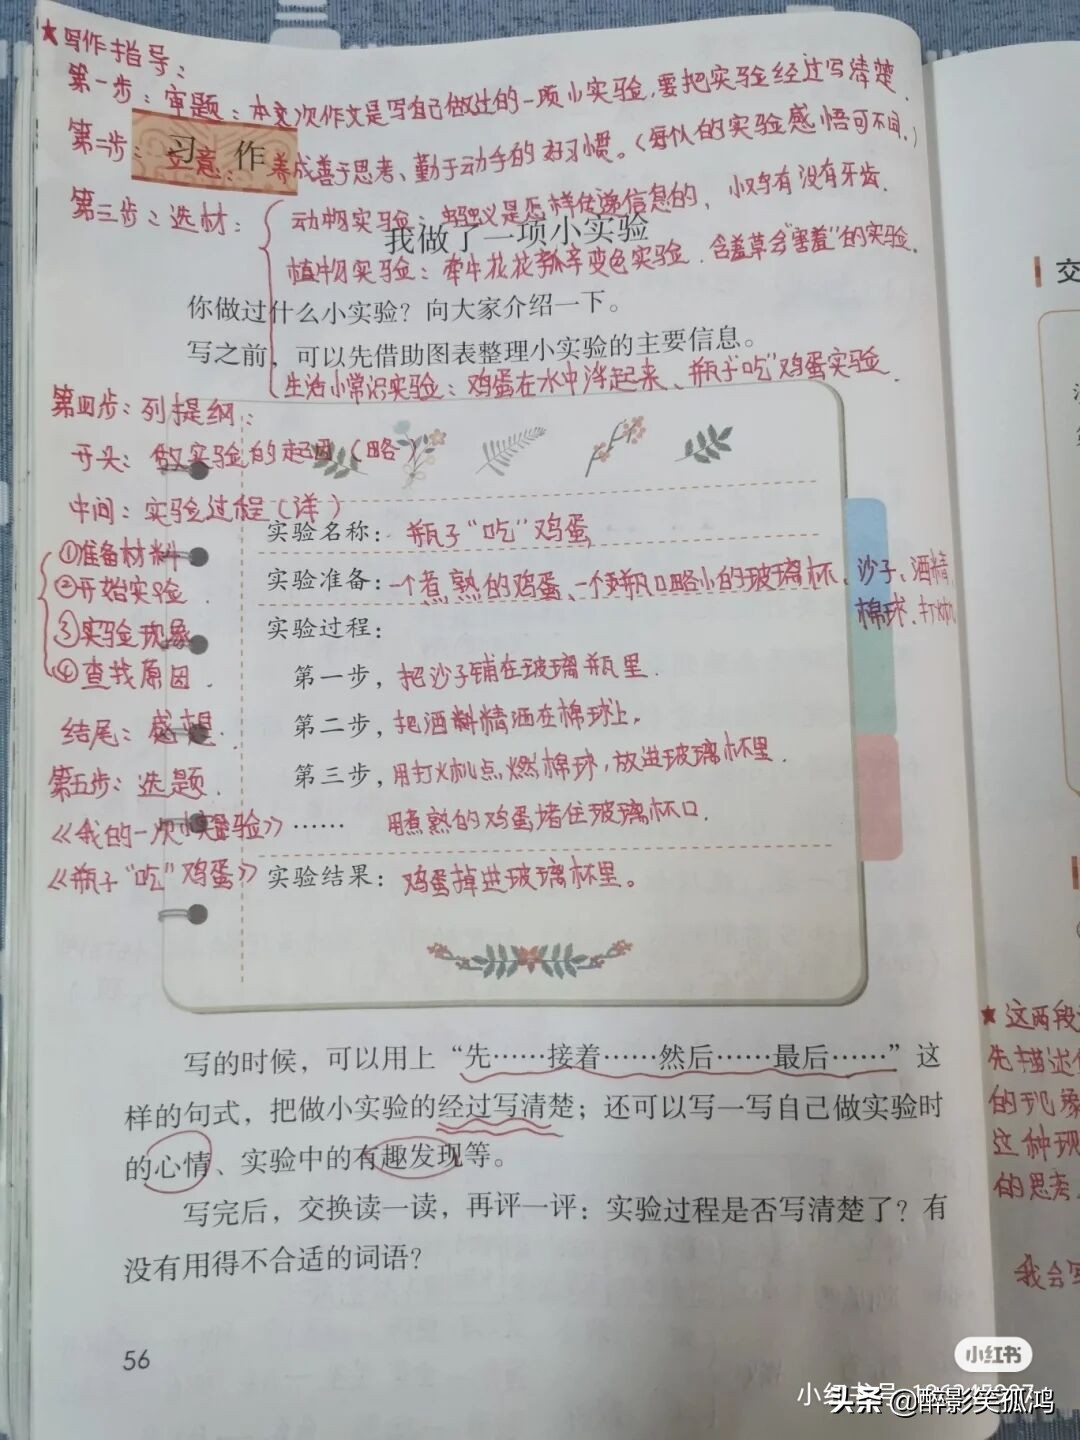 ★写作指导：
第一步：审题：本文次作文是写自己做过的一项小实验，要把实验经过写清楚．
第二步：立意：养成善于思考、勤于动手的好习惯。（每队的实验感悟可不同．）
习 作
第三步：选材：
动物实验：蚂蚁是怎样传递信息的，小鸟有没有牙齿．
我做了一项小实验
植物实验：牵牛花花瓣变色实验．含羞草会“害羞”的实验．
你做过什么小实验？向大家介绍一下。
写之前，可以先借助图表整理小实验的主要信息。
生活小常识实验：鸡蛋在水中浮起来、瓶子“吃”鸡蛋实验．
第四步：列提纲：
开头：做实验的起因（略）
中间：实验过程（详）
①准备材料
②开始实验．
③实验现象
④查找原因．
结尾：感想．
第五步：选题．
《我的一次小实验》
《瓶子“吃”鸡蛋》
实验名称：瓶子“吃”鸡蛋
实验准备：一个煮熟的鸡蛋、一个瓶口略小的玻璃杯、沙子、酒精
棉球、打火机
实验过程：
第一步，把沙子铺在玻璃瓶里．
第二步，把酒精洒在棉球上．
第三步，用打火机点燃棉球，放进玻璃杯里．
…… 用煮熟的鸡蛋堵住玻璃杯口．
实验结果：鸡蛋掉进玻璃杯里。
写的时候，可以用上“先……接着……然后……最后……”这
样的句式，把做小实验的经过写清楚；还可以写一写自己做实验时
的心情、实验中的有趣发现等。
写完后，交换读一读，再评一评：实验过程是否写清楚了？有
没有用得不合适的词语？
56
交
★这两段
先描述
的现象
这种现
的思考．
我会写
小红书
小红书号
头条 @醉影笑孤鸿